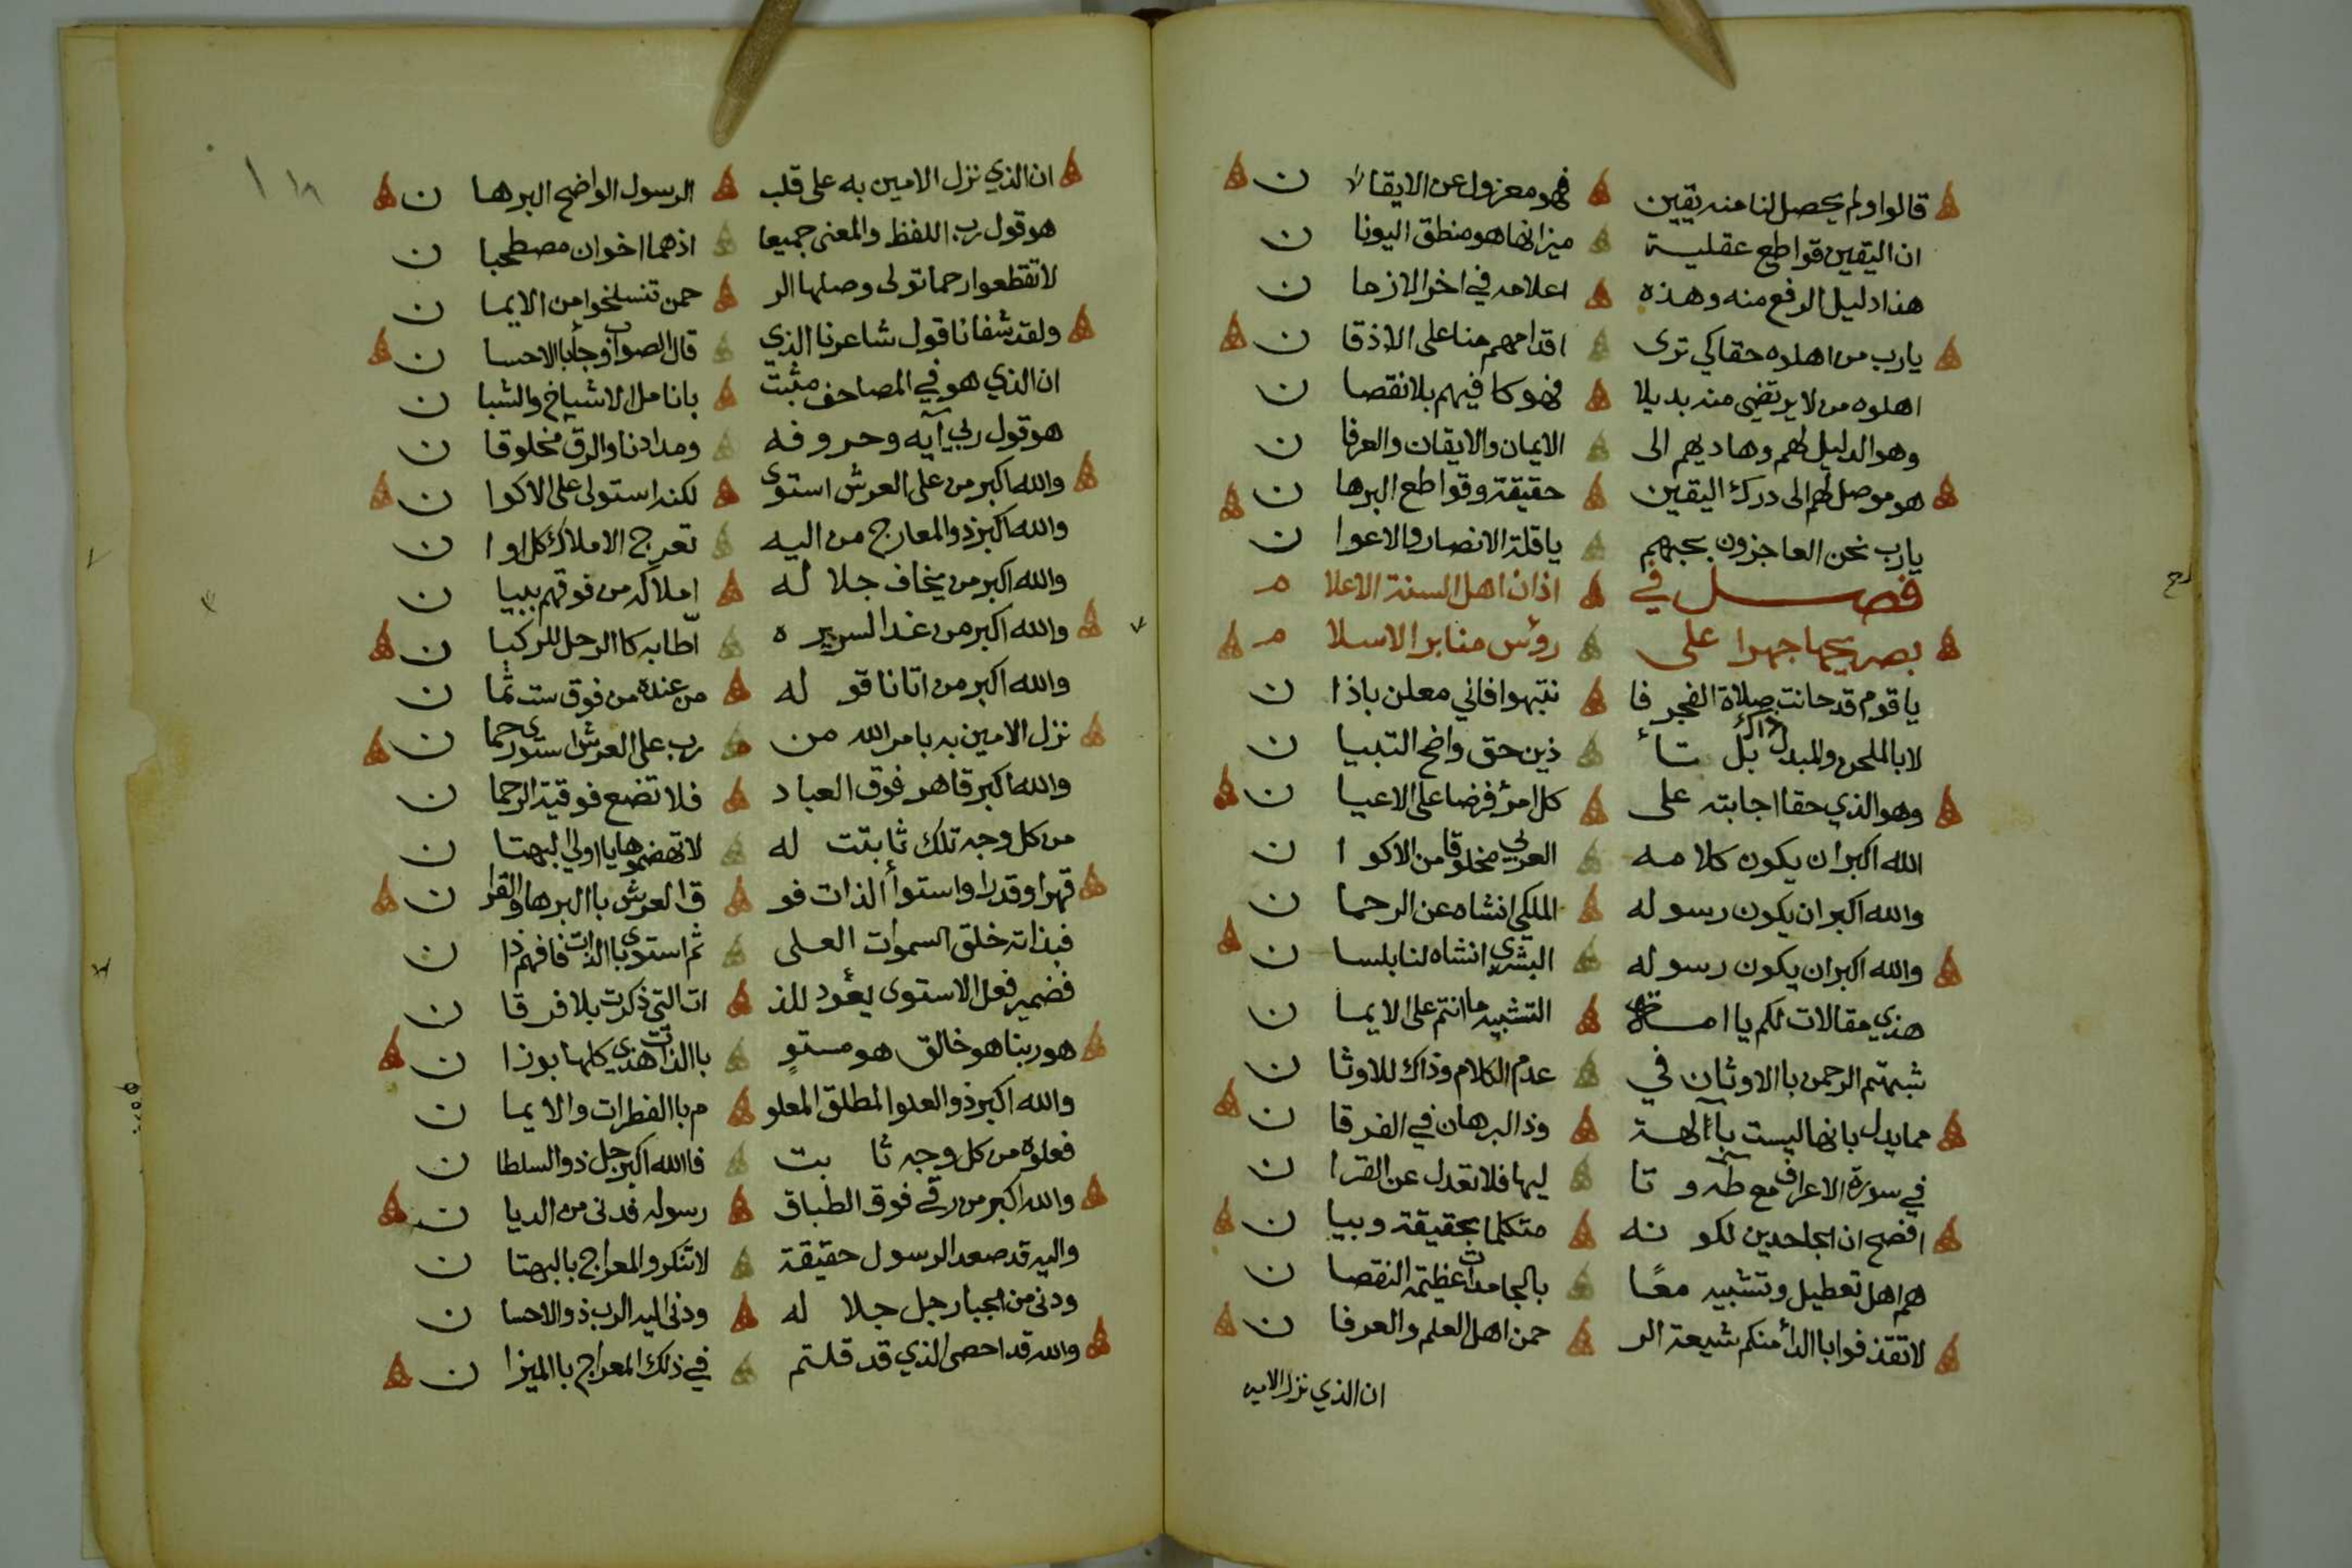 قالوا ولم يحصل لنا منه يقين فهو معزول عن الايقا ن
ان اليقين قواطع عقلية ميزانها هو منطق اليونا ن
هذا دليل الرفع منه وهذه اعلامه في اخر الازما ن
يارب من اهلوه حقا كي ترى اقدامهم منا على الاذقا ن
اهلوه من لا يرتضي منه بديلا فهو كافيهم بلا نقصا ن
وهو الدليل لهم وهاديهم الى الايمان والايقان والعرفا ن
هو موصل لهم الى درك اليقين حقيقة وقواطع البرها ن
يارب نحن العاجزون بحبهم يا قلة الانصار والاعوا ن
فصل في اذان اهل السنة الاعلا م
بصريحها جهرا على رؤس منابر الاسلا م
يا قوم قد حانت صلاة الفجر فا نتبهوا فاني معلن باذا ن
لا بالملحن والمبدل ذاك بل تا ذين حق واضح التبيا ن
وهو الذي حقا اجابته على كل امرؤ فرضا على الاعيا ن
الله اكبر ان يكون كلامه العربي مخلوقا من الاكوا ن
والله اكبر ان يكون رسوله الملكي انشاه عن الرحما ن
والله اكبر ان يكون رسوله البشري انشاه لنا بلسا ن
هذي مقالات لكم يا امة التشبيه ما انتم على الايما ن
شبهتم الرحمن باالاوثان في عدم الكلام وذاك للاوثا ن
مما يدل بانها ليست باآلهة وذا البرهان في الفرقا ن
في سورة الاعراف مع طه و تا ليها فلا تعدل عن القرا ن
افصح ان الجاحدين لكو نه متكلما بحقيقة وبيا ن
هم اهل تعطيل وتشبيه معًا بالجامدات عظيمة النقصا ن
لا تقذفوا باالدأ منكم شيعة الر حمن اهل العلم والعرفا ن
ان الذي نزل الامين
١١٨
ان الذي نزل الامين به على قلب الرسول الواضح البرها ن
هو قول رب اللفظ والمعنى جميعا اذهما اخوان مصطحبا ن
لا تقطعوا رحما تولى وصلها الر حمن تنسلخوا من الايما ن
ولقد شفانا قول شاعرنا الذي قال الصواب وجأ باالاحسا ن
ان الذي هو في المصاحف مثبت بانامل الاشياخ والشبا ن
هو قول ربي آيه وحروفه ومدادنا والرق مخلوقا ن
والله اكبر من على العرش استوى لكنه استولى على الاكوا ن
والله اكبر ذو المعارج من اليه تعرج الاملاك كل اوا ن
والله اكبر من يخاف جلا له املاكه من فوقهم ببيا ن
والله اكبر من غدا لسريره اطّا به كاالرحل للركبا ن
والله اكبر من اتانا قو له من عنده من فوق ست ثما ن
نزل الامين به بامر الله من رب على العرش استوى رحما ن
والله اكبر قاهر فوق العباد فلا تضع فوقية الرحما ن
من كل وجه تلك ثابتت له لا تهضموها يا اولي البهتا ن
قهرا وقدرا واستوأ الذات فو ق العرش باالبرها والقرا ن
فبذاته خلق السموات العلى ثم استوى باالذات فافهم ذا ن
فضمير فعل الاستوى يعؤد للذ ات التي ذكرت بلا فرقا ن
هو ربنا هو خالق هو مستوٍ باالذات هذي كلها بوزا ن
والله اكبر ذو العلو المطلق المعلو م باالفطرات والايما ن
فعلوه من كل وجه ثا بت فاالله اكبر جل ذو السلطا ن
والله اكبر من رقى فوق الطباق رسوله فدنى من الديا ن
واليه قد صعد الرسول حقيقة لا تنكرو المعراج بالبهتا ن
ودنى من الجبار جل جلا له ودنى اليه الرب ذو الاحسا ن
والله قد احصى الذي قد قلتم في ذلك المعراج باالميزا ن